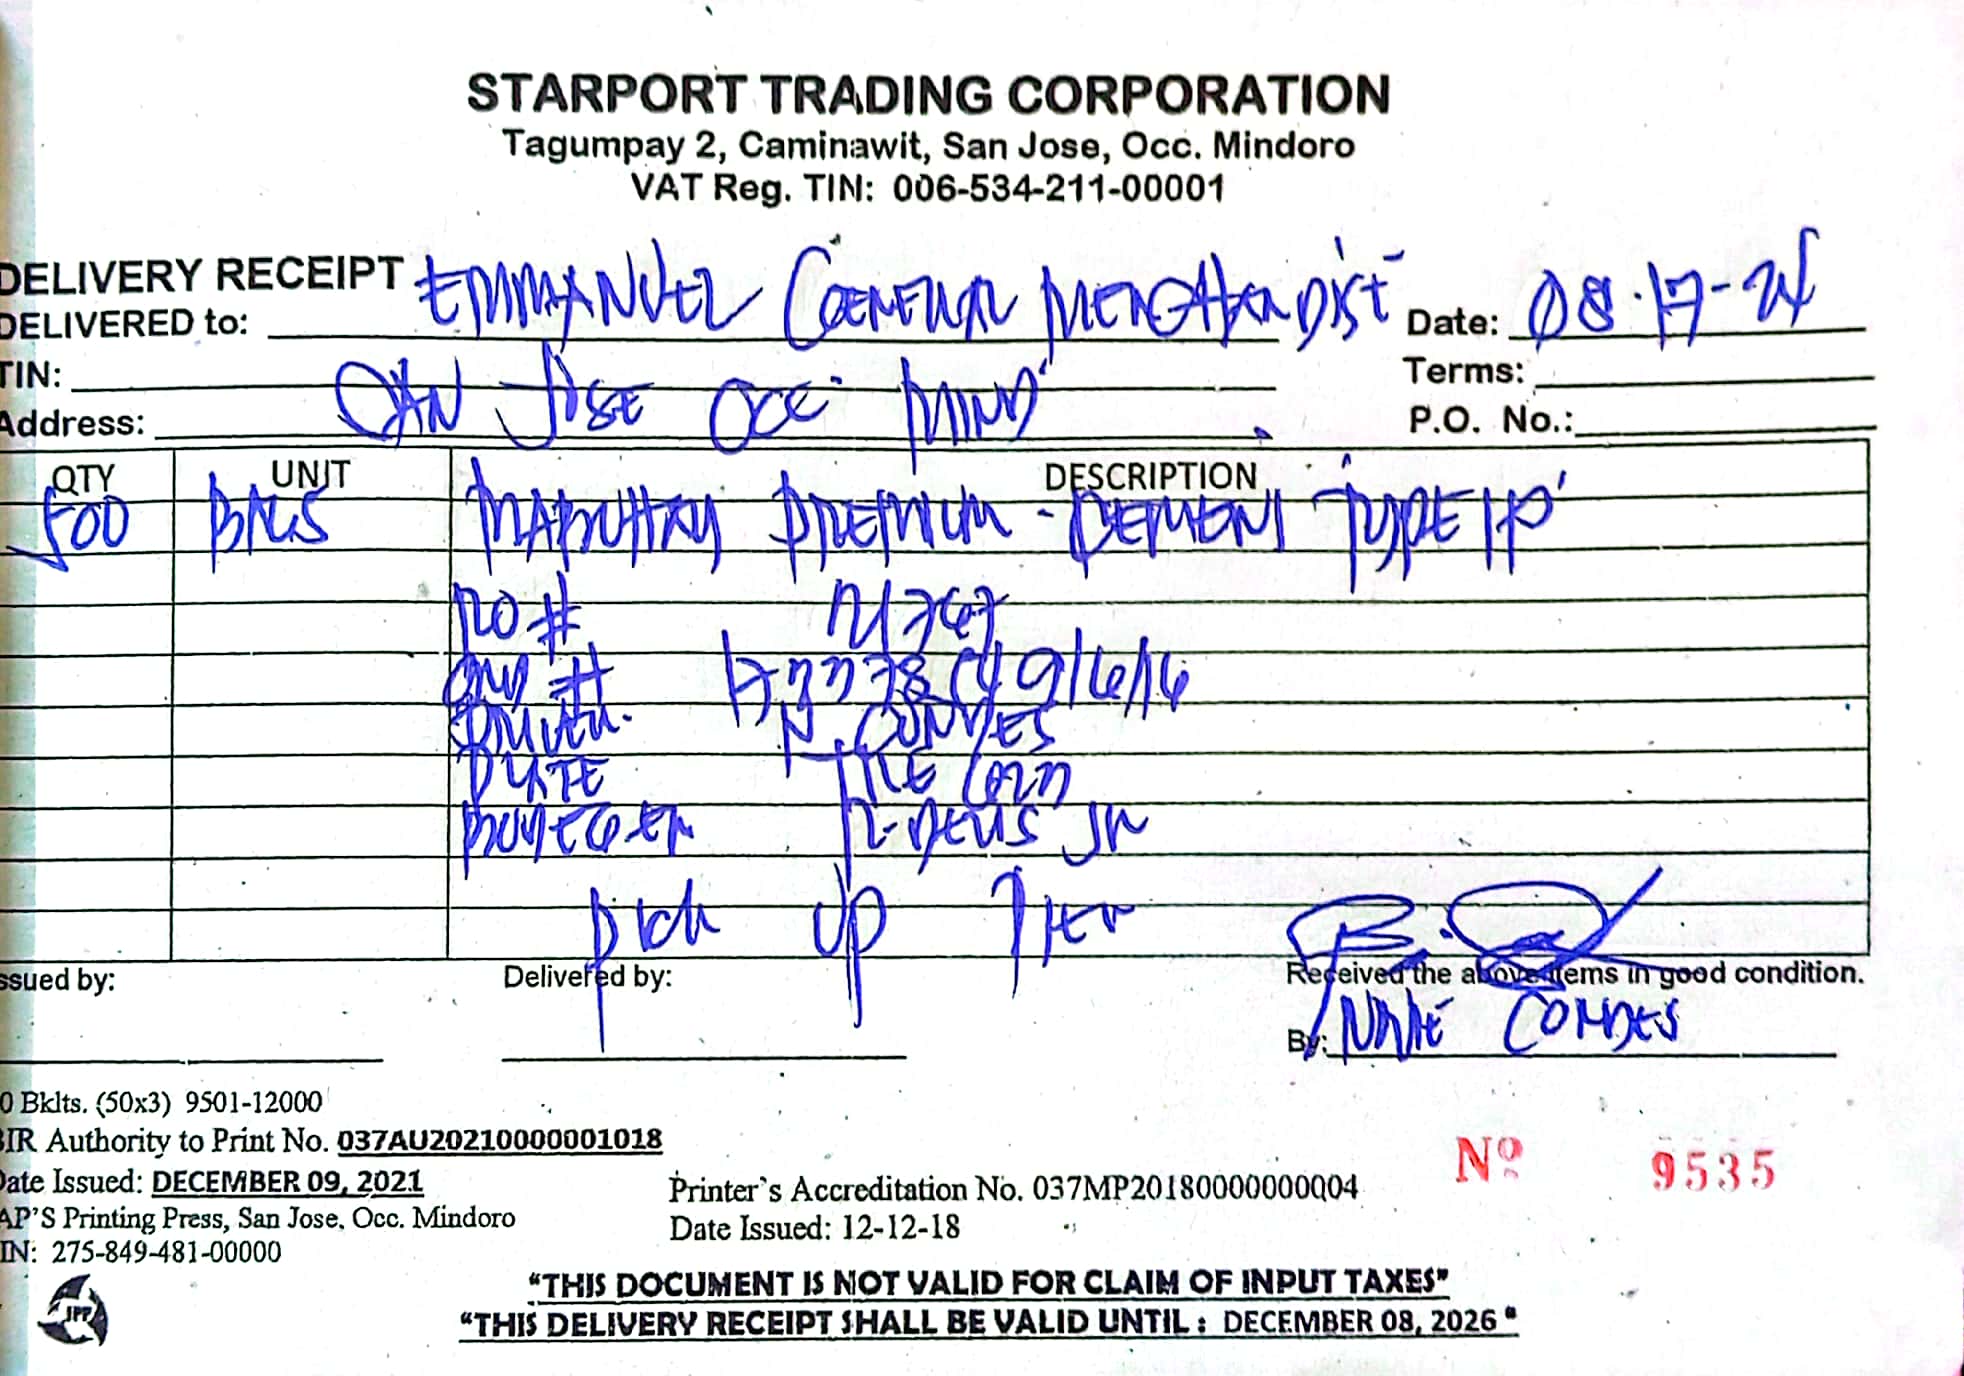 STARPORT TRADING CORPORATION
Tagumpay 2, Caminawit, San Jose, Occ. Mindoro
VAT Reg. TIN: 006-534-211-00001
DELIVERY RECEIPT
DELIVERED to: EMMANUEL GENERAL MERCHANDISE Date: 08-17-24
TIN: Terms:
Address: SAN JOSE OCC MIND P.O. No.:
QTY UNIT DESCRIPTION
500 BAGS MABUHAY PREMIUM CEMENT TYPE 1P
#
#
N. CONDES
PLATE
JR
PICK UP PIER
ssued by: Delivered by: Received the above items in good condition.
By: NATE CONDES
0 Bklts. (50x3) 9501-12000
BIR Authority to Print No. 037AU20210000001018
Date Issued: DECEMBER 09, 2021
AP'S Printing Press, San Jose, Occ. Mindoro
IN: 275-849-481-00000
Printer's Accreditation No. 037MP20180000000004
Date Issued: 12-12-18
Nº 9535
JPP
"THIS DOCUMENT IS NOT VALID FOR CLAIM OF INPUT TAXES"
"THIS DELIVERY RECEIPT SHALL BE VALID UNTIL : DECEMBER 08, 2026"